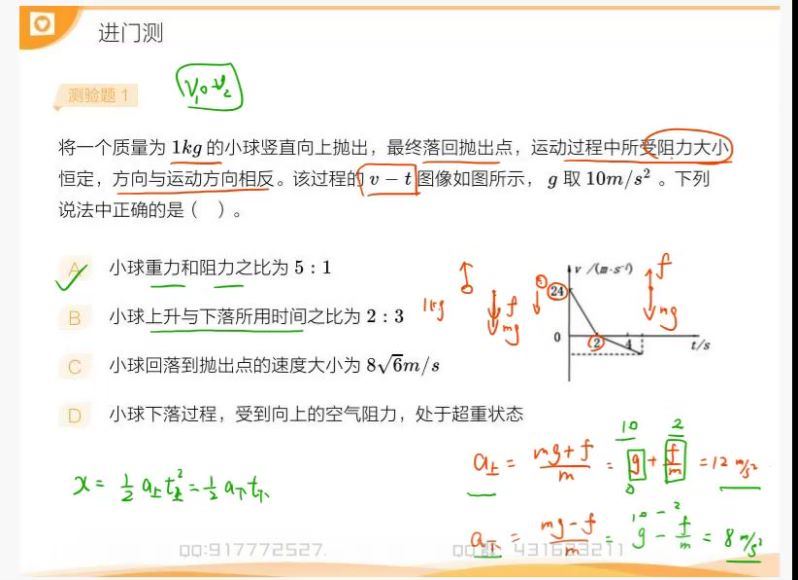 进门测
测验题 1
V₁₀ V₂
将一个质量为 1kg 的小球竖直向上抛出，最终落回抛出点，运动过程中所受阻力大小
恒定，方向与运动方向相反。该过程的 v − t 图像如图所示， g 取 10m/s² 。下列
说法中正确的是（ ）。
A 小球重力和阻力之比为 5 : 1
B 小球上升与下落所用时间之比为 2 : 3
C 小球回落到抛出点的速度大小为 8√6m/s
D 小球下落过程，受到向上的空气阻力，处于超重状态
1kg f mg
v /(m·s⁻¹)
24
0 2 4 t/s
f
mg
10 2
a上 = (mg+f)/m = g + f/m = 12 m/s²
x = ½ a上t上² = ½ a下t下
10 - 2
a下 = (mg-f)/m = g - f/m = 8 m/s²
qq:917772527.